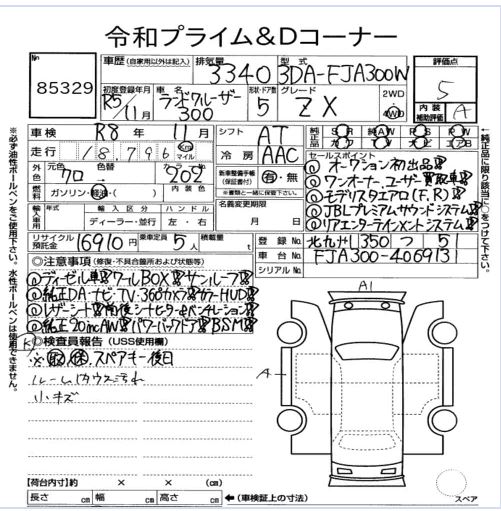 令和プライム&Dコーナー
No 85329
車歴 (自家用以外は記入)
排気量 3340
型式 3DA-FJA300W
評価点 5
内装補助評価 A
初度登録年月 R5/11月
車名 ランドクルーザー300
形状・ドア数 5
グレード ZX
2WD
4WD
車検 R8年11月
シフト AT
純正品 SR AW PS PW
走行 18,796 Km マイル
冷房 AAC
セールスポイント
①オークション初出品!!
②ワンオーナー、ユーザー買取車!!
③モデリスタエアロ(F.R)!!
④JBLプレミアムサウンドシステム!!
⑤リアエンターテインメントシステム!!
外色 元色 クロ 色替
カラーNo 202
新車整備手帳(保証書付) 有・無
※書類と一緒に保管して下さい。
燃料 ガソリン・軽油・( )
内装色
名義変更期限 月 日
輸入車用 年式 輸入区分 ハンドル
ディーラー・並行 左・右
リサイクル預託金 16910円
乗車定員 5人
積載量 t
登録No. 北九州 350 つ 51
車台No. FJA300-4069131
シリアルNo.
◎注意事項 (修復・不具合箇所および状態等)
①ディーゼル車!!クールBOX!!サンルーフ!!
②純正DA・ナビ・TV・360°カメラ!!カラーHUD!!
③レザーシート!!前後シートヒーター&ベンチレーション!!
④純正20incAW!!パワーバックドア!!BSM!!
◎検査員報告 (USS使用欄)
※取保、スペアキー後日
ルーム内ウス汚れ
小キズ
A1
A
スペア
【荷台内寸】約 × × (cm)
長さ cm 幅 cm 高さ cm
←(車検証上の寸法)
※必ず油性ボールペンをご使用下さい。水性ボールペンは使用できません。